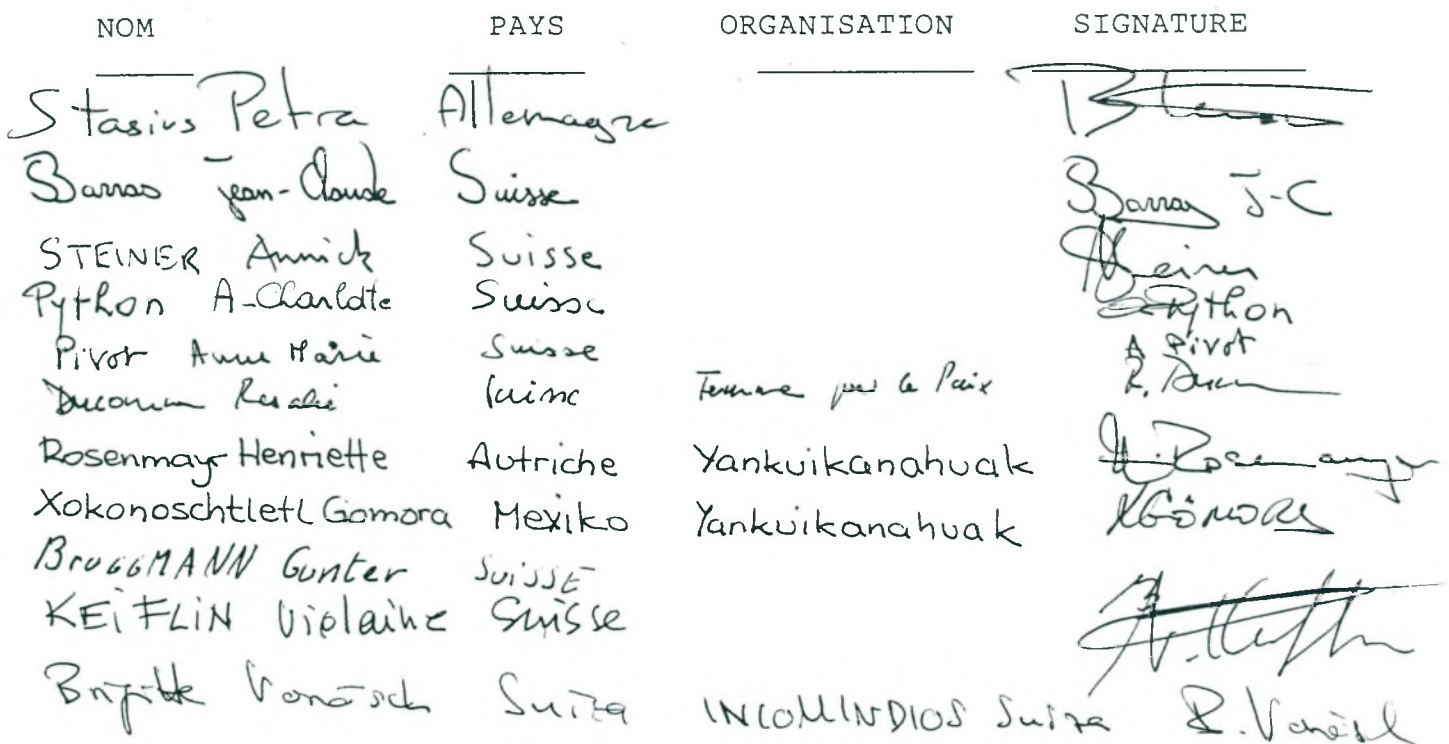 NOM PAYS ORGANISATION SIGNATURE
Stasius Petra Allemagne
Barras Jean-Claude Suisse Barras J-C
STEINER Annick Suisse
Python A-Charlotte Suisse Python
Pivot Anne Marie Suisse A Pivot
Rosalie Femme pour la Paix R.
Rosenmayr Henriette Autriche Yankuikanahuak H. Rosenmayr
Xokonoschtletl Gomora Mexiko Yankuikanahuak XGÓMORA
BruggMANN Gunter SuissE
KEiFLiN Violaine Suisse
Brigitte Vonäsch Suiza INCOMINDIOS Suiza B. Vonäsch